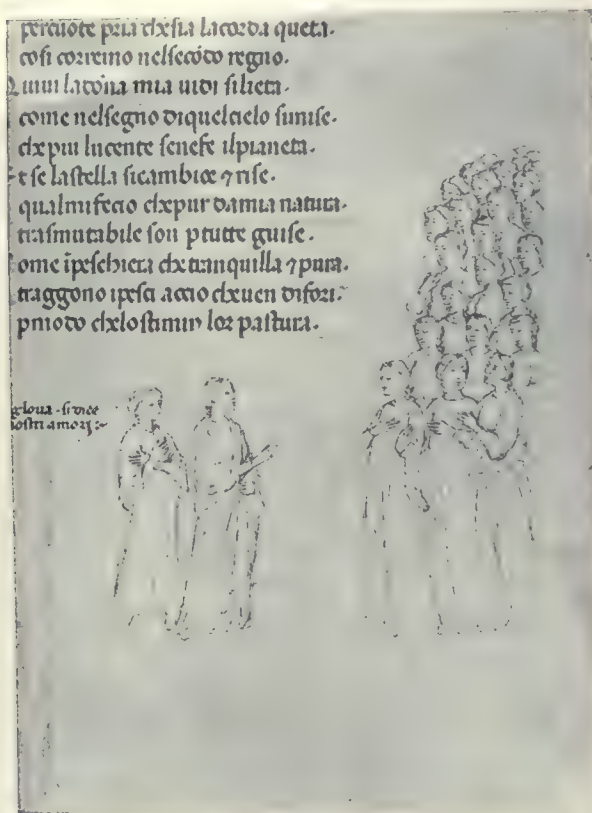 percuote pria chesia lacorda queta.
cosi correino nelsecōdo regno.
Quiui ladōna mia uidi silieta.
come nelsegno diquelcielo simise.
che piu lucente senefe ilpianeta.
t se lastella sicambioe ⁊ rise.
qualmifecio chepur damia natura.
trasmutabile son ptutte guise.
ome īpeschiera che tranquilla ⁊ pura.
traggono ipesci accio cheuen difori.
pmodo chelo stimin lor pastura.
nostri amori:-